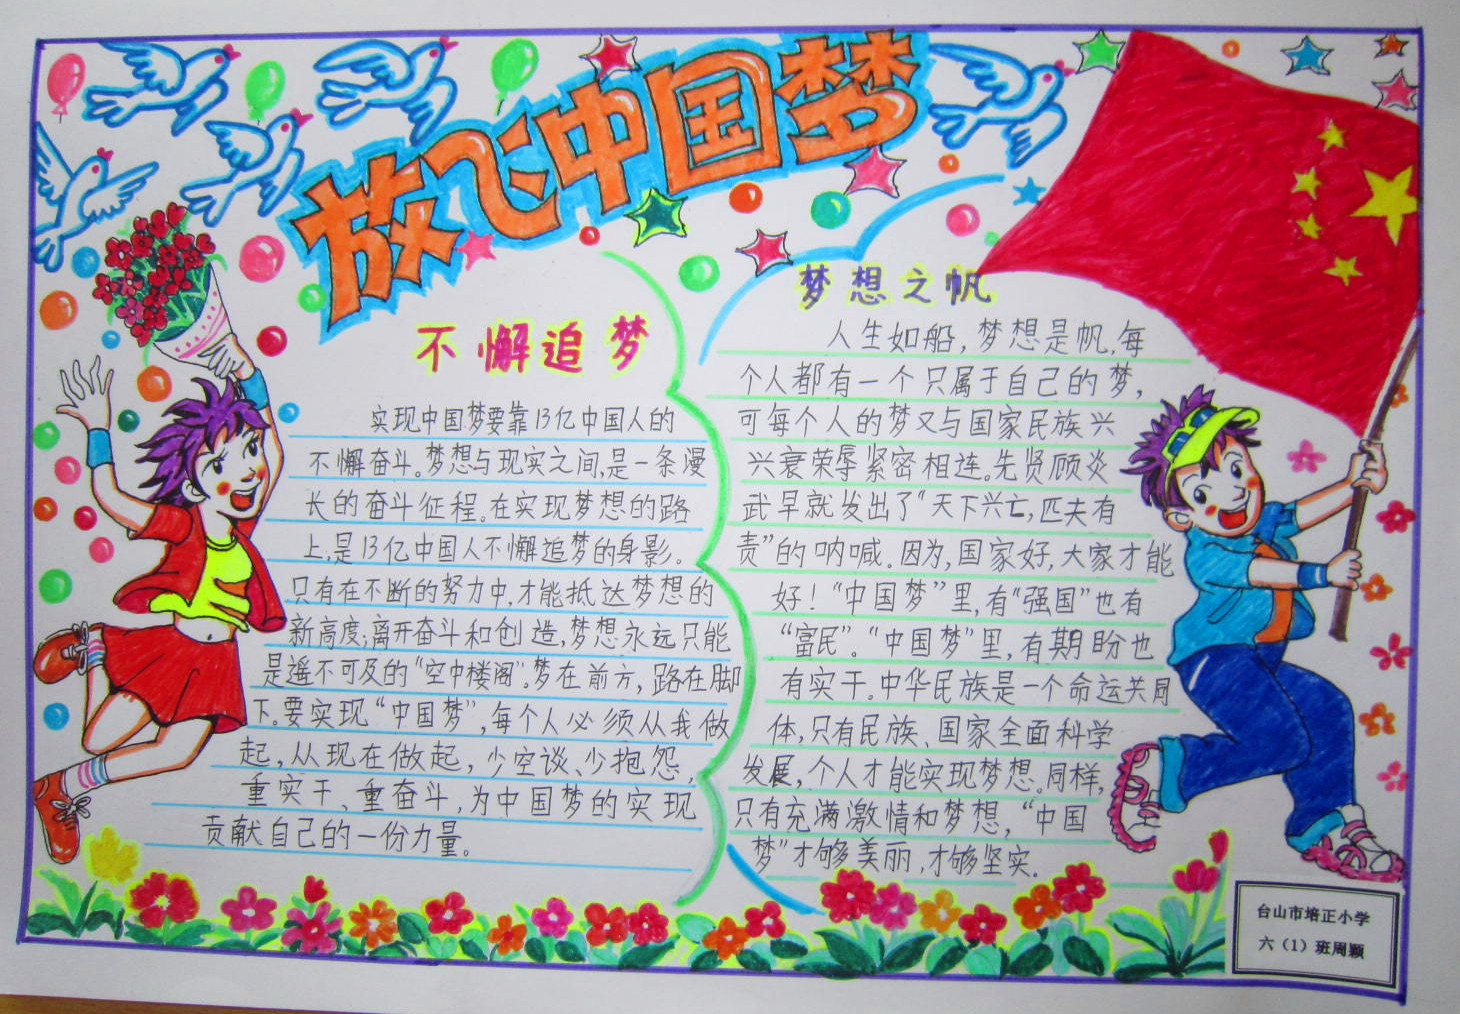 放飞中国梦
不懈追梦
实现中国梦要靠13亿中国人的
不懈奋斗。梦想与现实之间,是一条漫
长的奋斗征程。在实现梦想的路
上,是13亿中国人不懈追梦的身影。
只有在不断的努力中,才能抵达梦想的
新高度;离开奋斗和创造,梦想永远只能
是遥不可及的“空中楼阁”。梦在前方,路在脚
下。要实现“中国梦”,每个人必须从我做
起,从现在做起,少空谈、少抱怨,
重实干、重奋斗,为中国梦的实现
贡献自己的一份力量。
梦想之帆
人生如船,梦想是帆,每
个人都有一个只属于自己的梦,
可每个人的梦又与国家民族兴
兴衰荣辱紧密相连。先贤顾炎
武早就发出了“天下兴亡,匹夫有
责”的呐喊。因为,国家好,大家才能
好!“中国梦”里,有“强国”也有
“富民”。“中国梦”里,有期盼也
有实干。中华民族是一个命运共同
体,只有民族、国家全面科学
发展,个人才能实现梦想。同样,
只有充满激情和梦想,“中国
梦”才够美丽,才够坚实。
台山市培正小学
六（1）班周颖